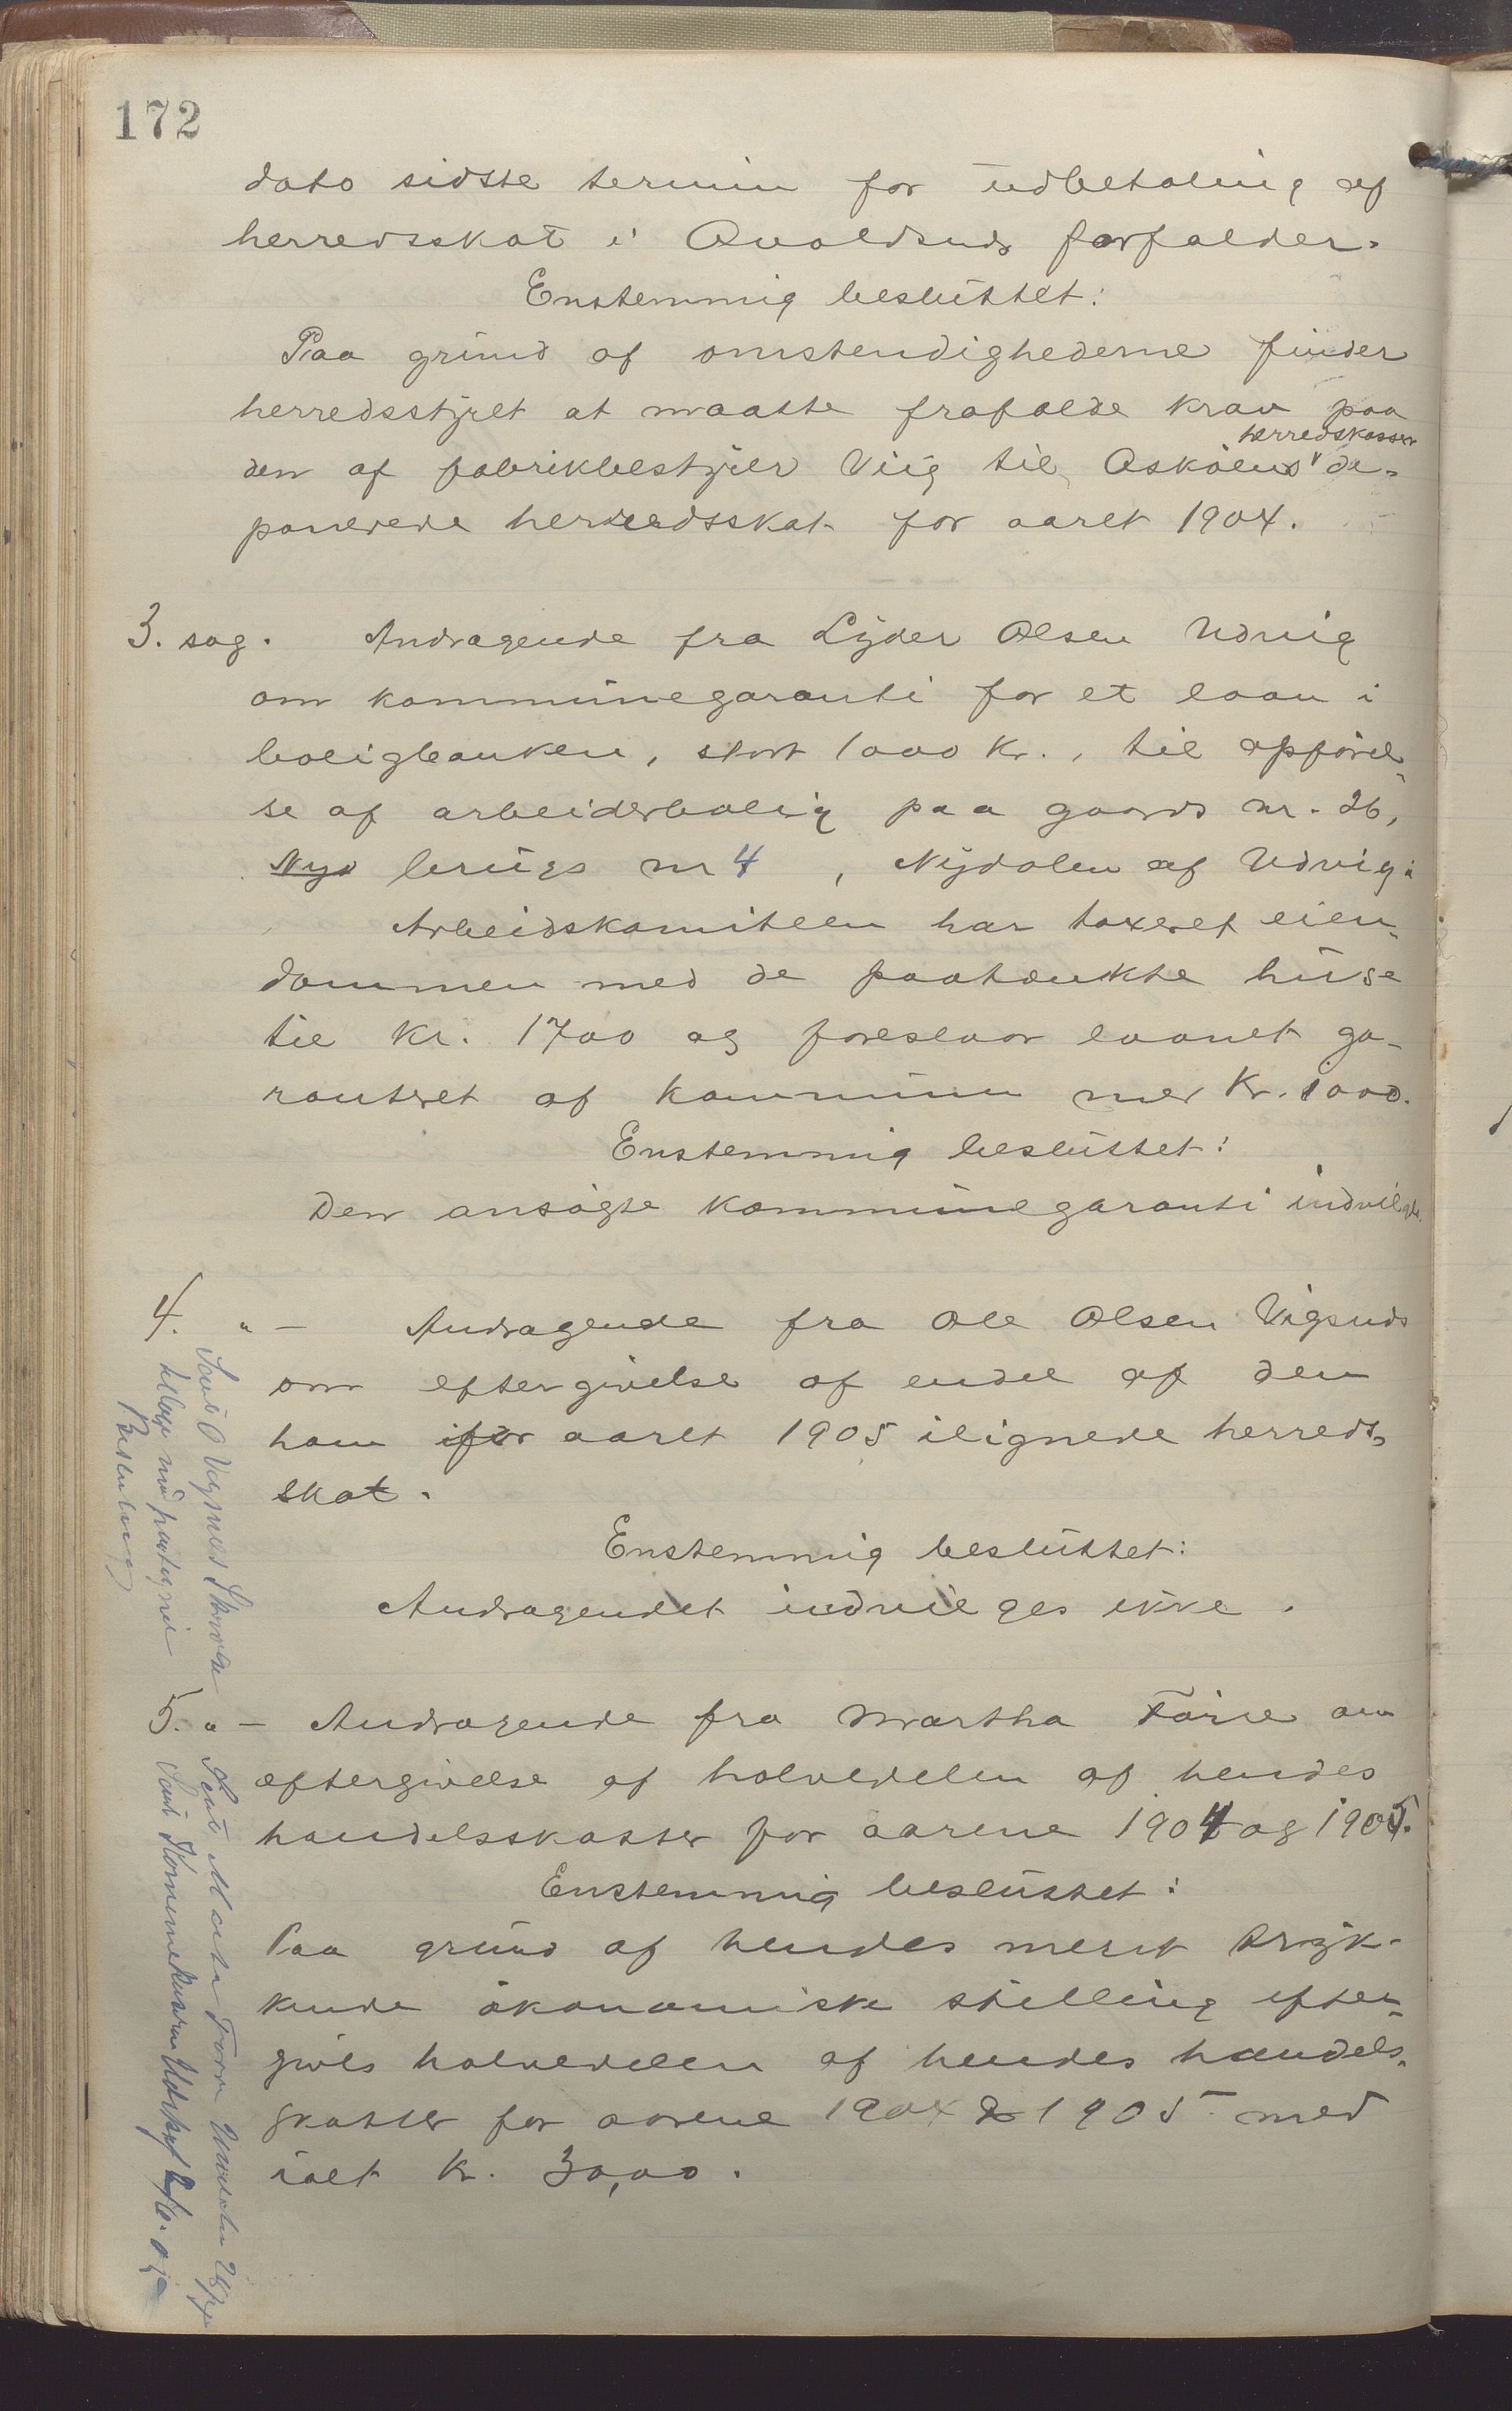 172
dato sidste termin for udbetaling af
herredsskat i Avaldsnes forfalder.
Enstemmig besluttet:
Paa grund af omstendighederne finder
herredsstyret at maatte frafalde krav paa
herredskasser
den af fabrikbestyrer Viig til Askøens de-
ponerede herredsskat for aaret 1904.
3. sag. Andragende fra Lyder Olsen Udvig
om kommunegaranti for et laan i
boligbanken, stort 1000 kr., til opførel-
se af arbeiderbolig paa gaards nr. 26,
Nyd brugs nr 4, Nydalen af Udvig.
Arbeidskomiteen har taxeret eien-
dommen med de paatænkte huse
til kr. 1700 og foreslaar laanet ga-
ranteret af kommunen med kr. 1000.
Enstemmig besluttet:
Den ansøgte kommunegaranti indvilges.
4. " - Andragende fra Ole Olsen Vigsnes
om eftergivelse af endel af den
ham for aaret 1905 ilignede herreds-
skat.
Enstemmig besluttet:
Andragendet indvilges ikke.
5. " - Andragende fra Martha Førre om
eftergivelse af halvedelen af hendes
handelsskatter for aarene 1904 og 1905.
Enstemmig besluttet:
Paa grund af hendes meget tryk-
kende økonomiske stilling efter-
gives halvedelen af hendes handels-
skatter for aarene 1904 & 1905 med
ialt kr. 30,00.
Beslutning